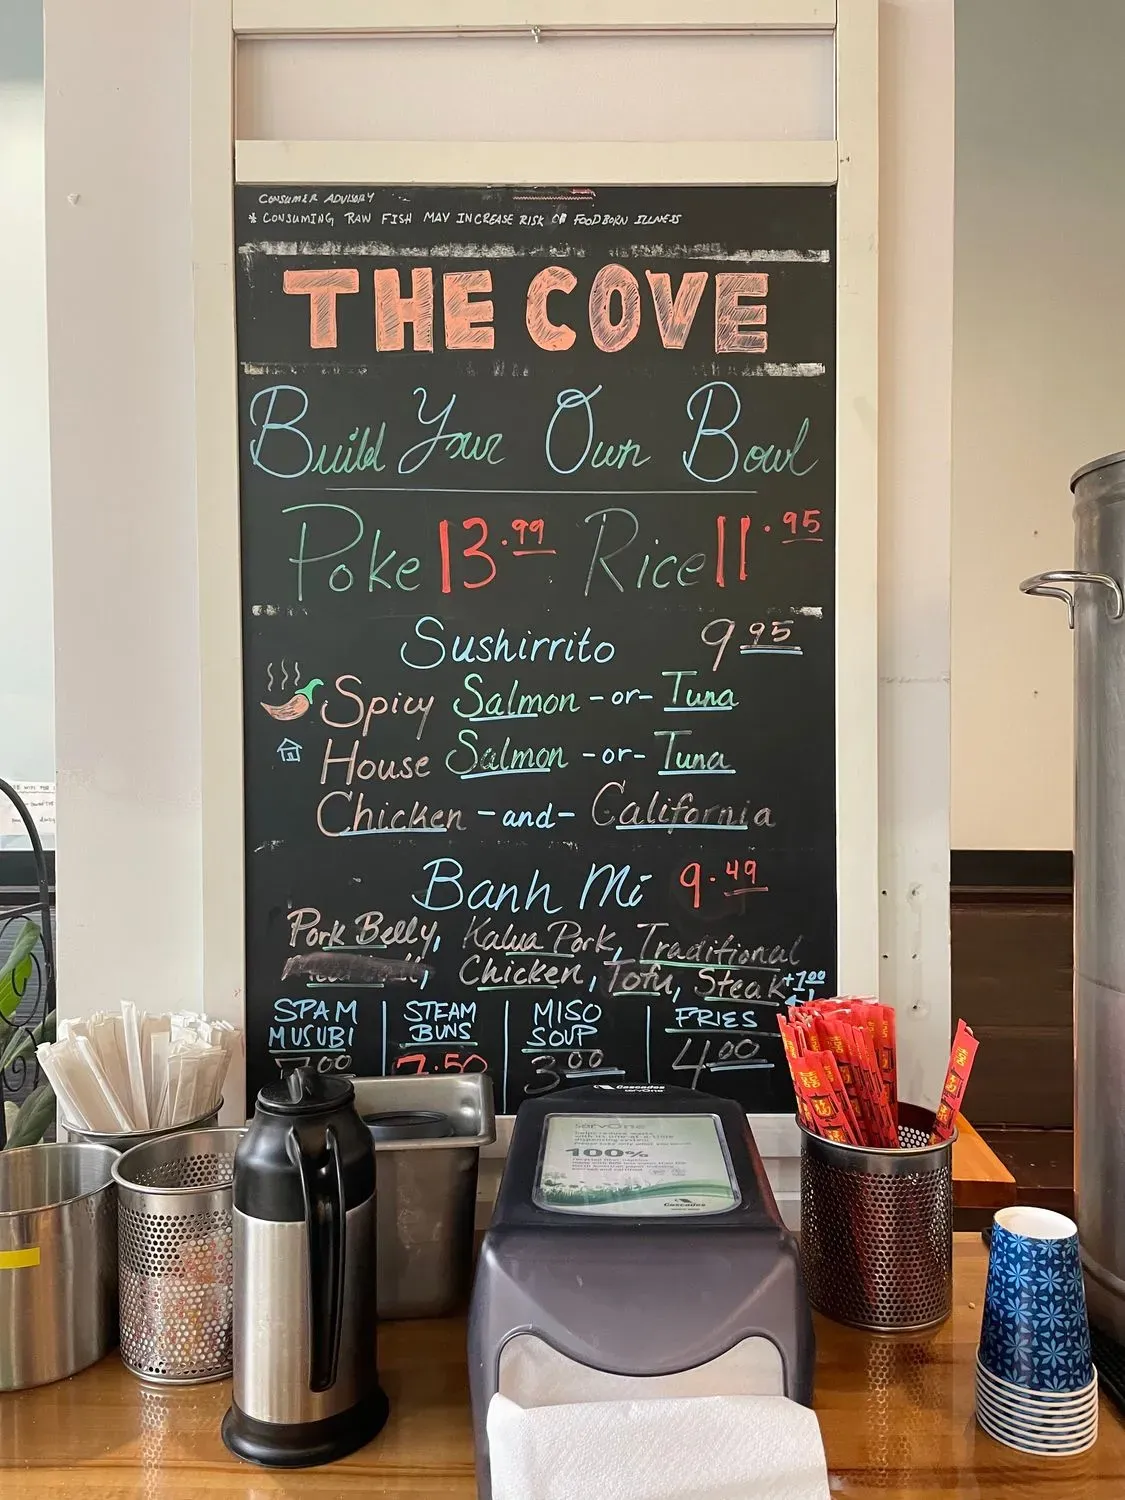 CONSUMER ADVISORY
* CONSUMING RAW FISH MAY INCREASE RISK OF FOODBORN ILLNESS
THE COVE
Build Your Own Bowl
Poke 13.99 Rice 11.95
Sushirrito 9 95
Spicy Salmon -or- Tuna
House Salmon -or- Tuna
Chicken -and- California
Banh Mi 9.49
Pork Belly, Kalua Pork, Traditional
Chicken, Tofu, Steak +1.00
SPAM MUSUBI
7.00
STEAM BUNS
7.50
MISO SOUP
3 00
FRIES
4 00
Cascades
servOne
100%
Cascades